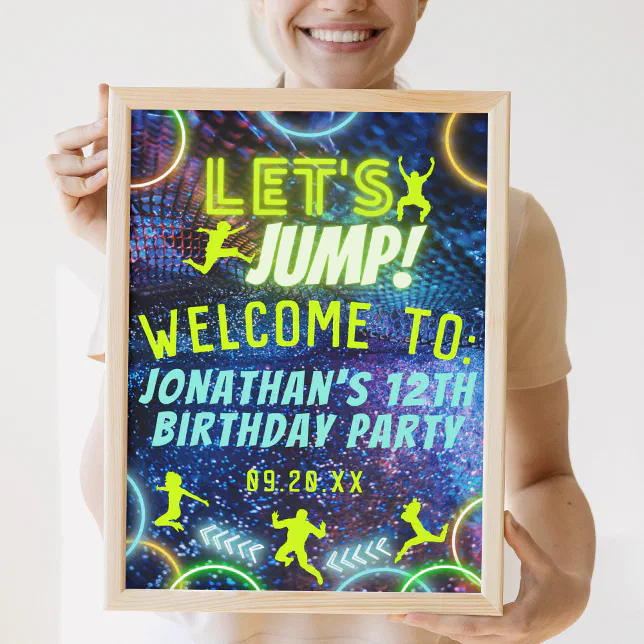 LET'S
JUMP!
WELCOME TO:
JONATHAN'S 12TH
BIRTHDAY PARTY
09.20.XX